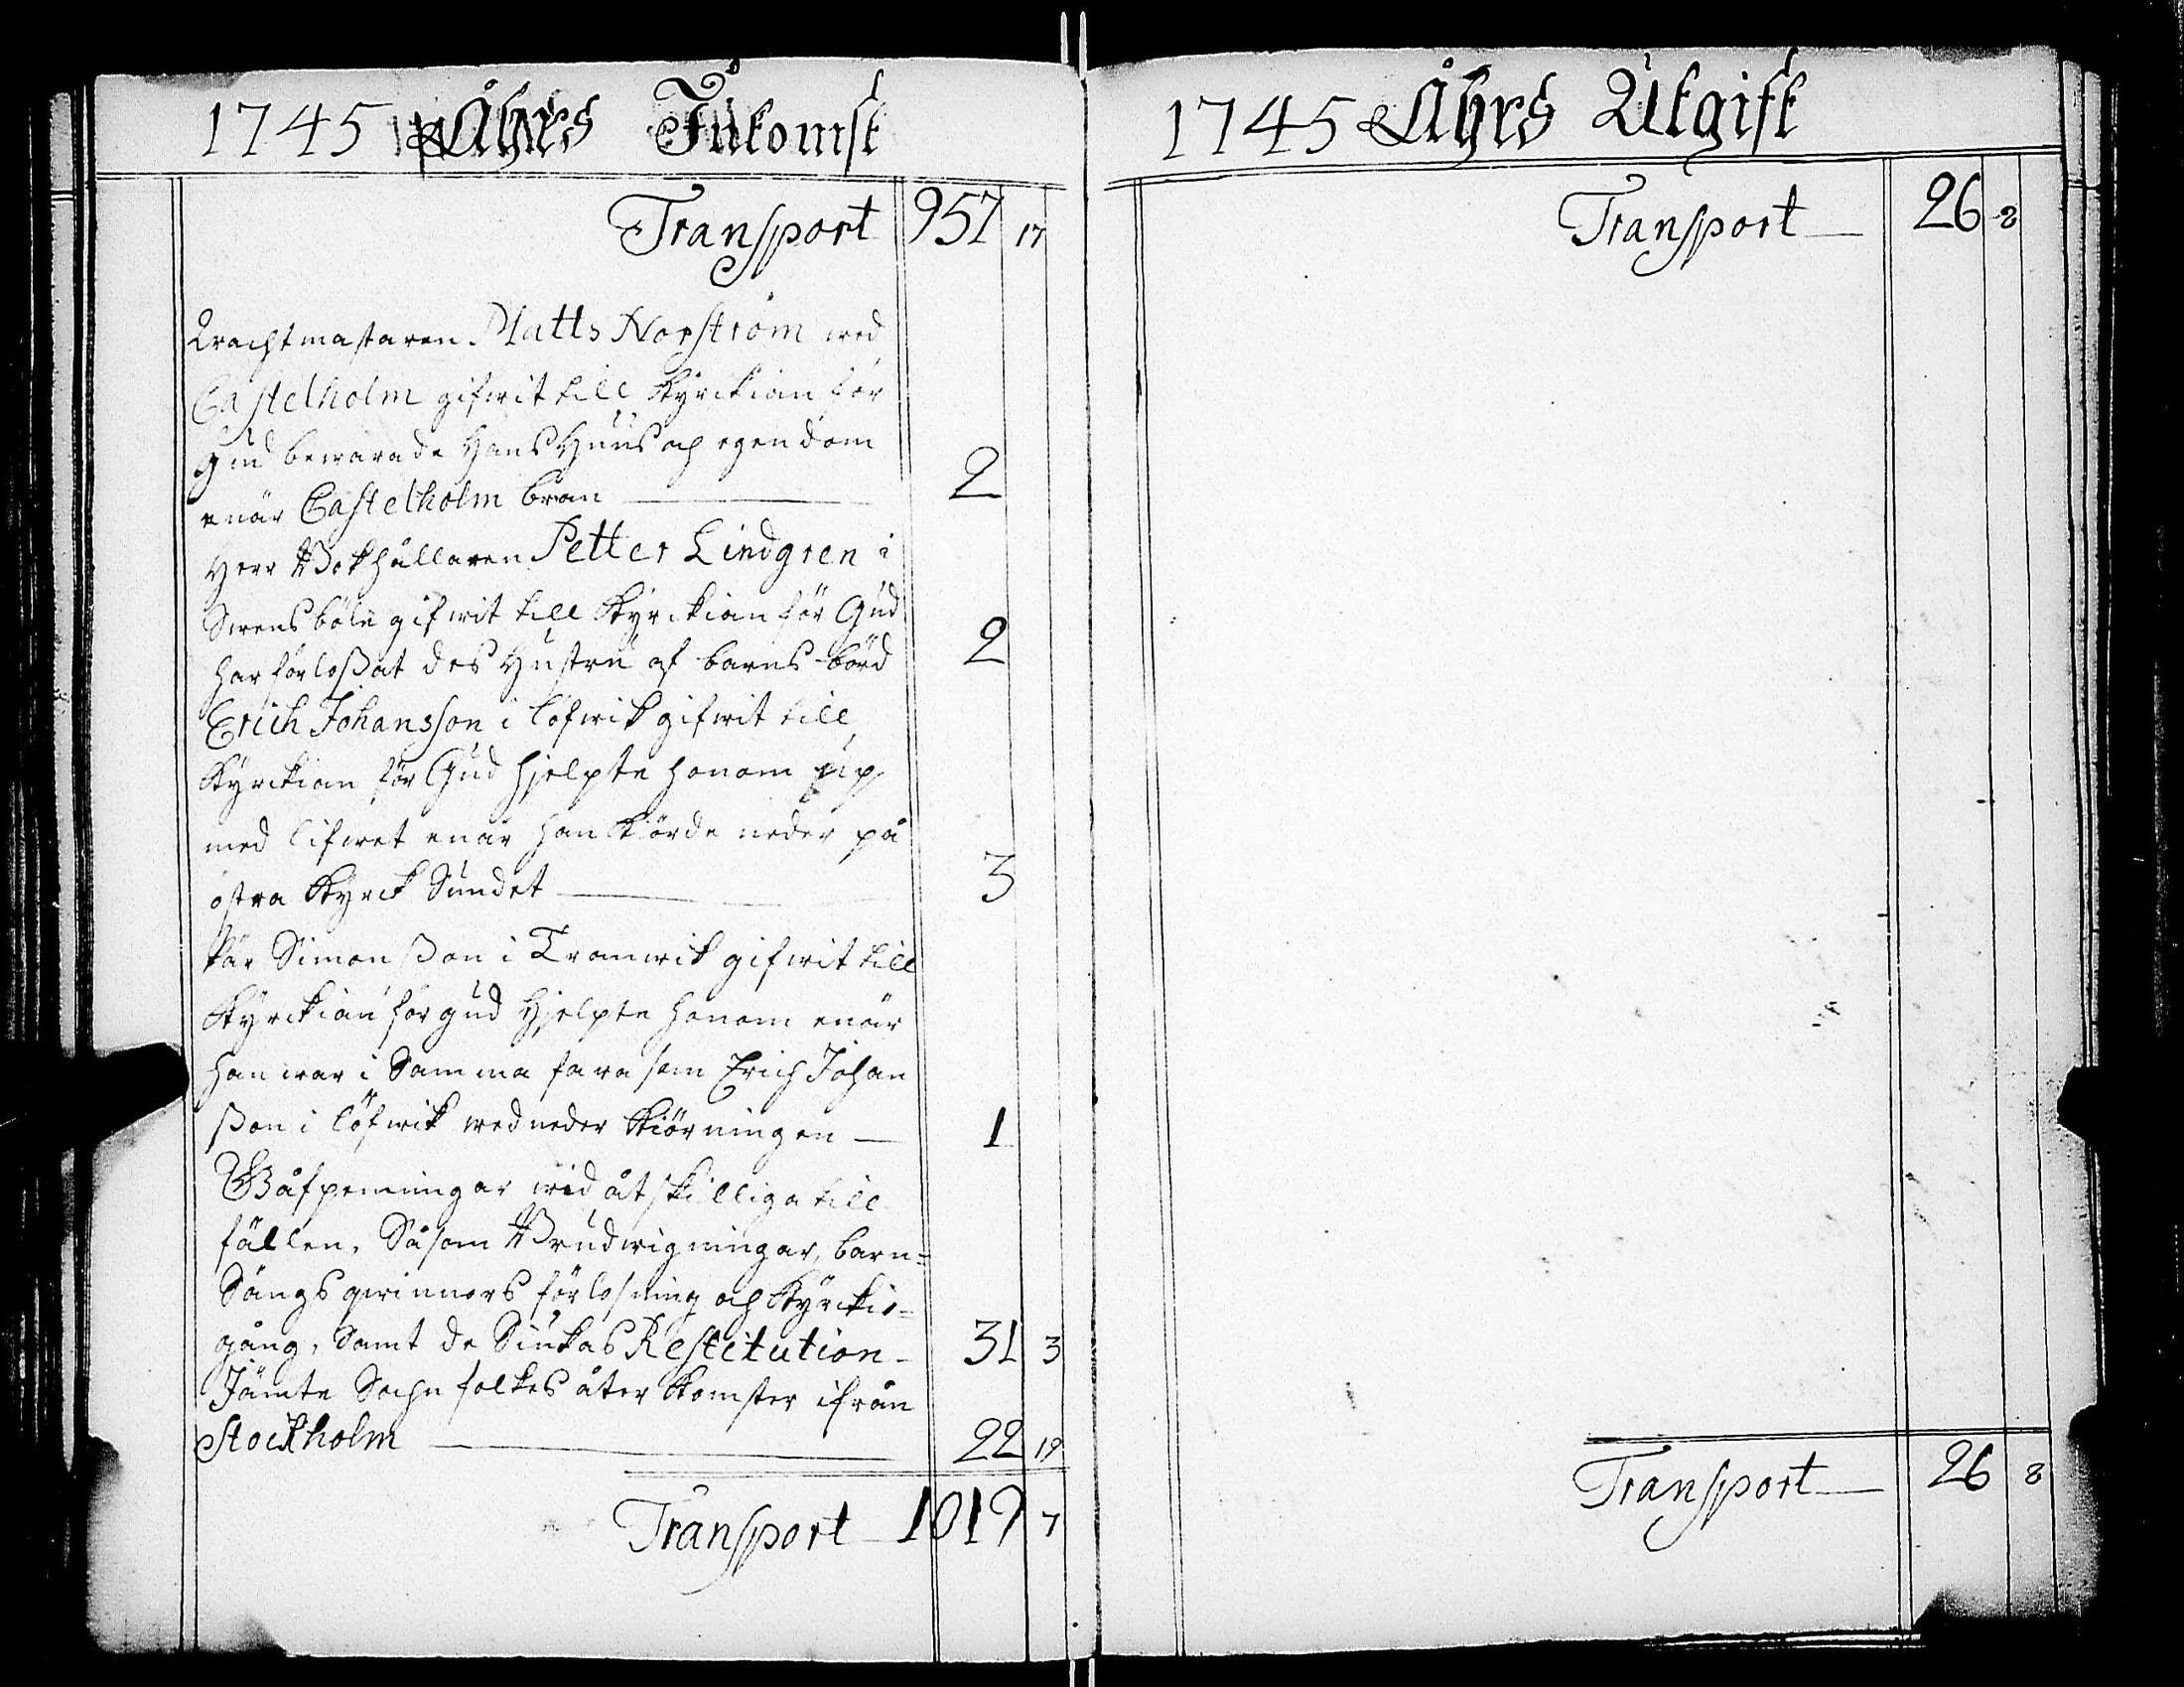 1745 Åhrs Inkomst
Transport 957 17
Wachtmästaren Matts Norström wed
Castelholm gifwit till Kyrckian för
Gud bewarade Hans Huus och egendom
enär Castelholm bran 2
Herr Bokhållaren Petter Lindgren i
Swensböle gifwit till Kyrckian för Gud
har förloßat des Hustru af barns-börd 2
Erich Johansson i Löfwik gifwit till
Kyrckian för Gud hjelpte honom up
med lifwet enär han Kiörde neder på
östra Kyrck Sundet 3
Pär Simonßon i Tranwik gifwit till
Kyrckian för gud Hjelpte honom enär
han war i Samma fara som Erich Johan
ßon i Löfwik wed neder Kiörningen 1
Gåfpenningar wid åtskilliga till
fällen, Såsom Brudwigningar, barn=
Sängs qwinnors förlosning och Kyrckio=
gång, Samt de Siukas Restitution 31 3
Jämte Sochn folkes åter Komster ifrån
Stockholm 22 19
Transport 1019 7
1745 Åhrs Utgift
Transport 26 8
Transport 26 8